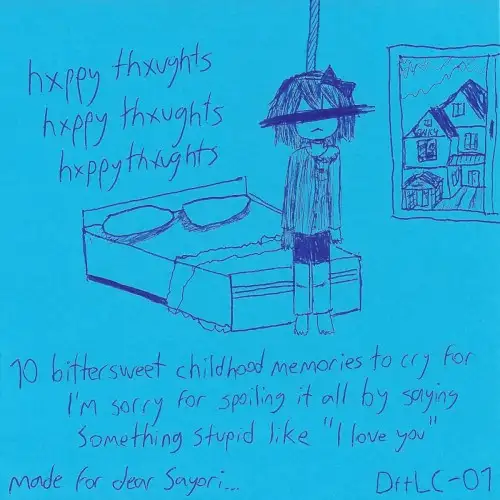 hxppy thxughts
hxppy thxughts
hxppy thxughts
10 bittersweet childhood memories to cry for
I'm sorry for spoiling it all by saying
something stupid like "I love you"
made for dear Sayori...
DttLC-01